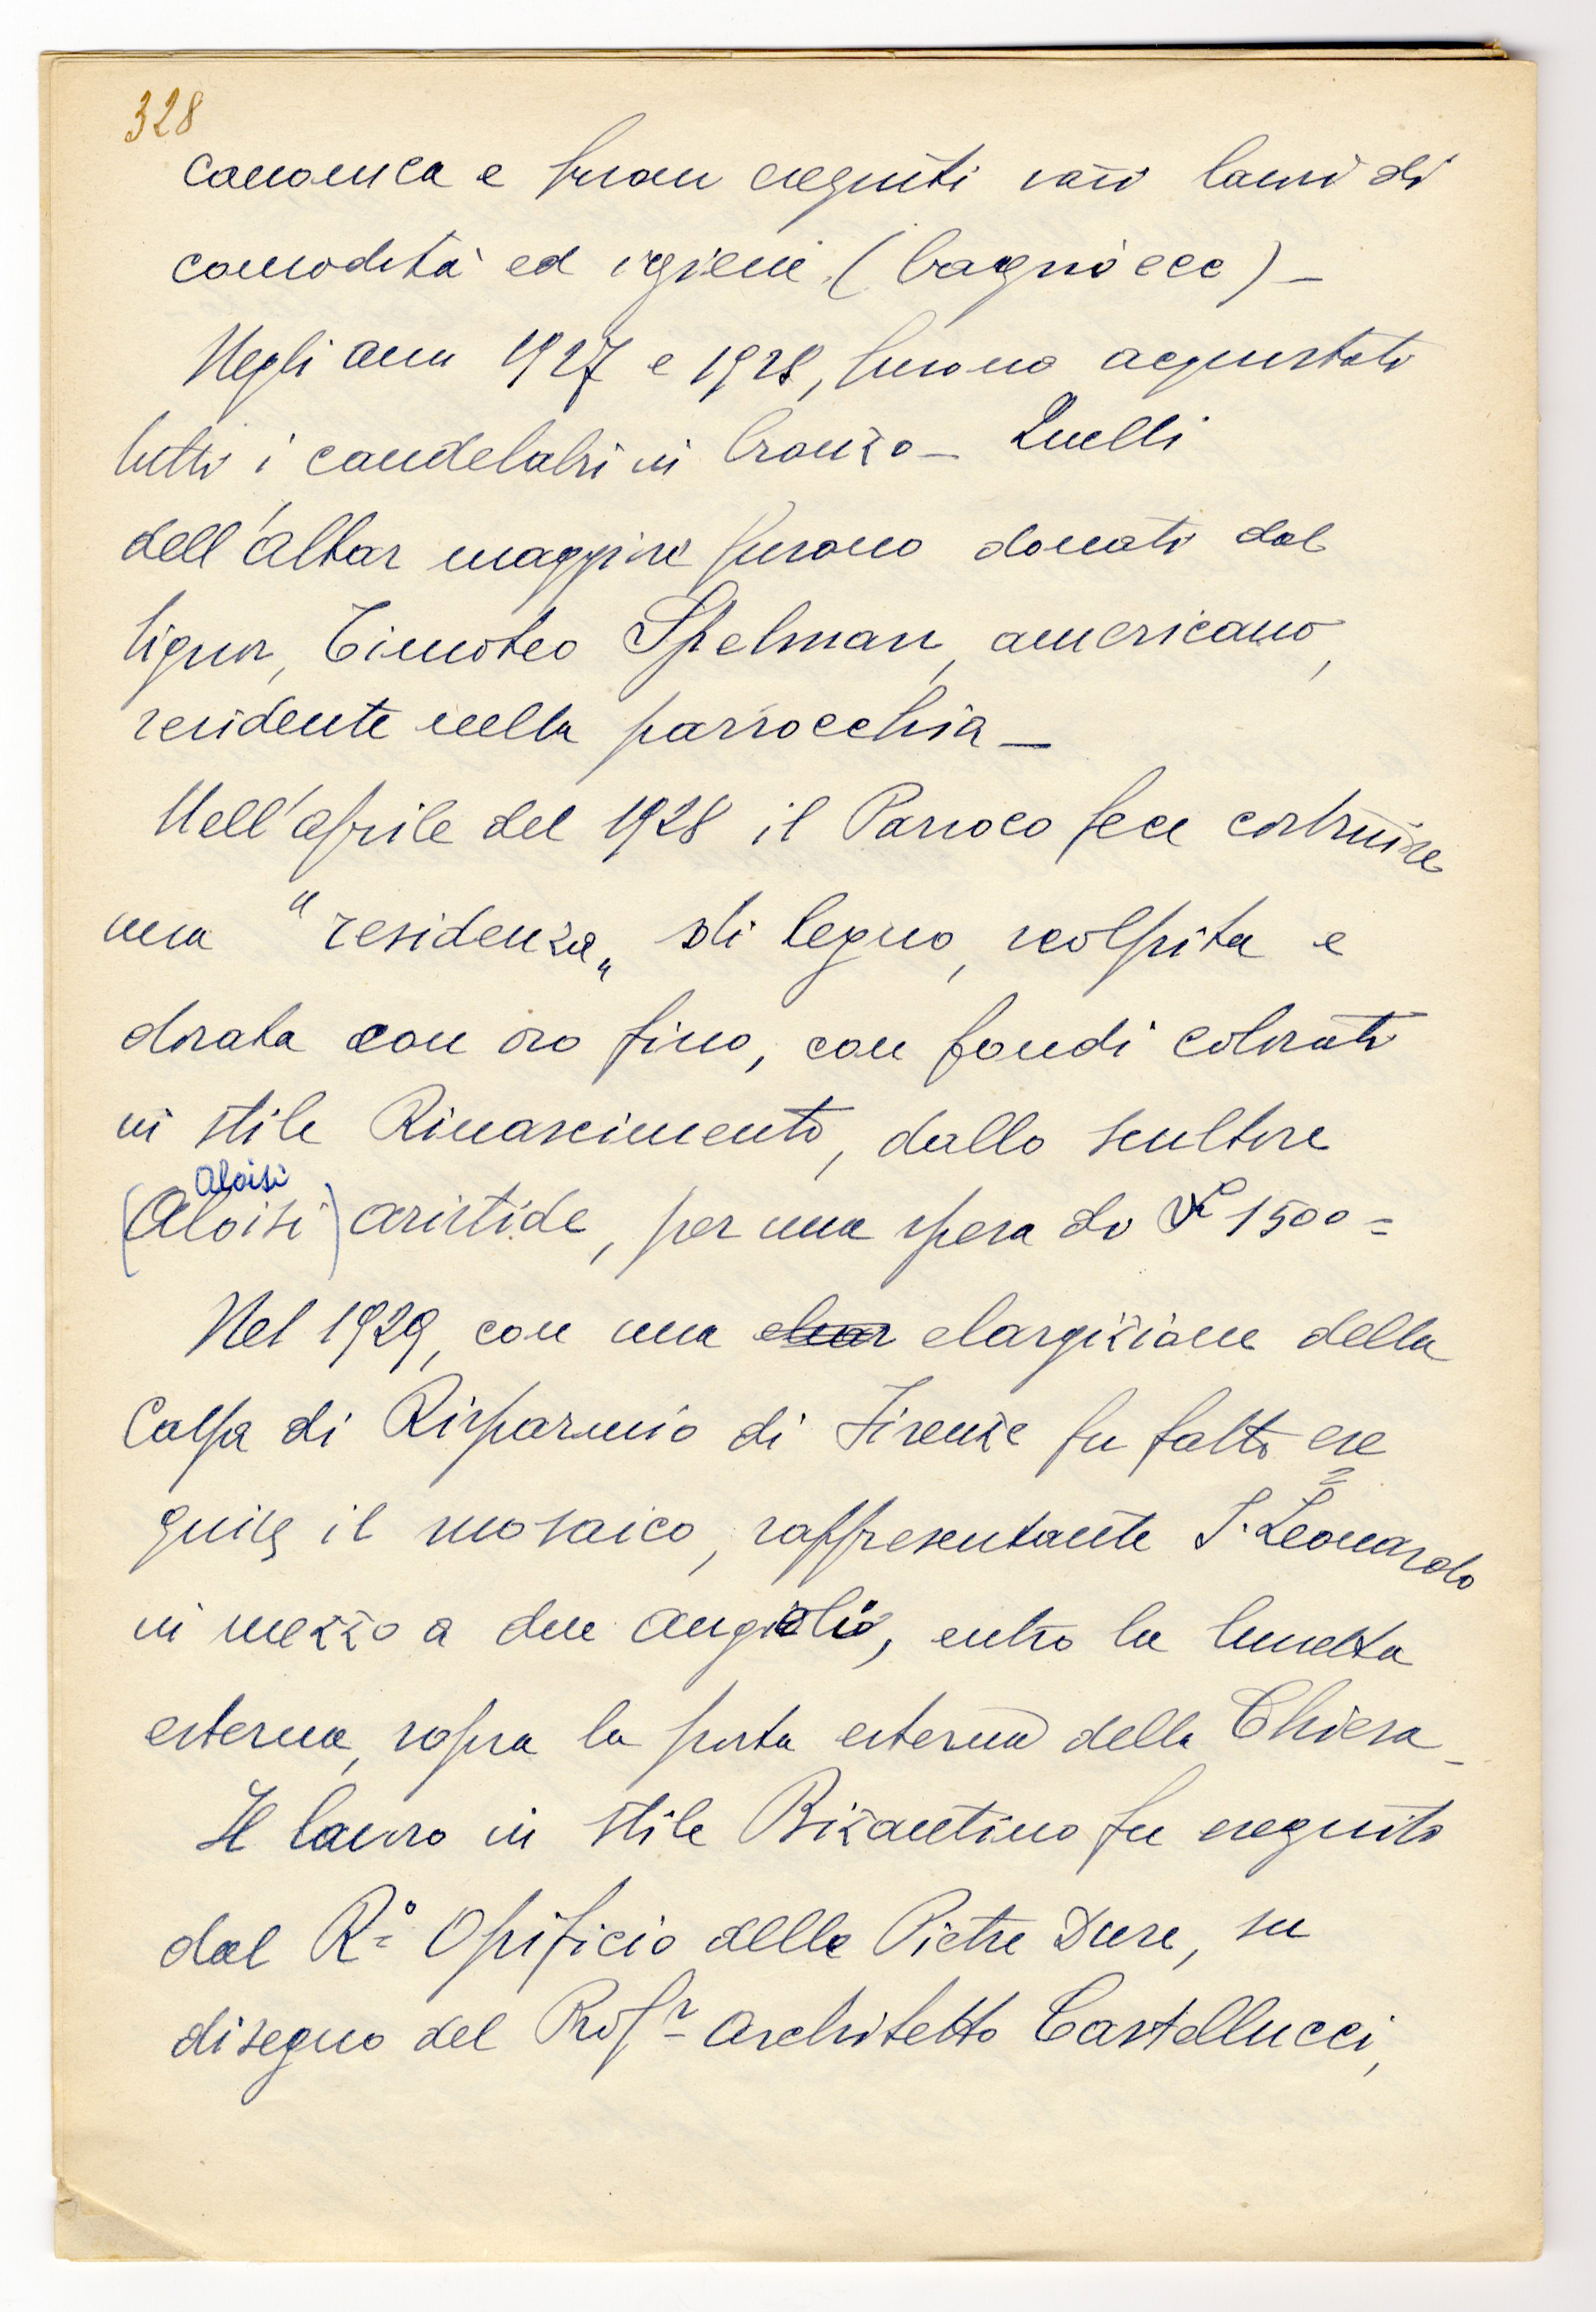 328
canonica e furon eseguiti varii lavori di
comodità ed igiene (bagni ecc) –
Negli anni 1927 e 1928, furono acquistati
tutti i candelabri in bronzo – Quelli
dell'altar maggiore furono donati dal
signor, Timoteo Spelman, americano,
residente nella parrocchia –
Nell'aprile del 1928 il Parroco fece costruire
una "residenza„ di legno, scolpita e
dorata con oro fino, con fondi colorati
in stile Rinascimento, dallo scultore
Aloisi
(Aloisi) Aristide, per una spesa di £ 1500 =
Nel 1929, con una elargizione della
Cassa di Risparmio di Firenze fu fatto ese
guire il mosaico, rappresentante S. Leonardo
in mezzo a due angioli, entro la lunetta
esterna, sopra la porta esterna della Chiesa –
Il lavoro in stile Bizantino fu eseguito
dal R.° Opificio delle Pietre Dure, su
disegno del Prof.r Architetto Castellucci,